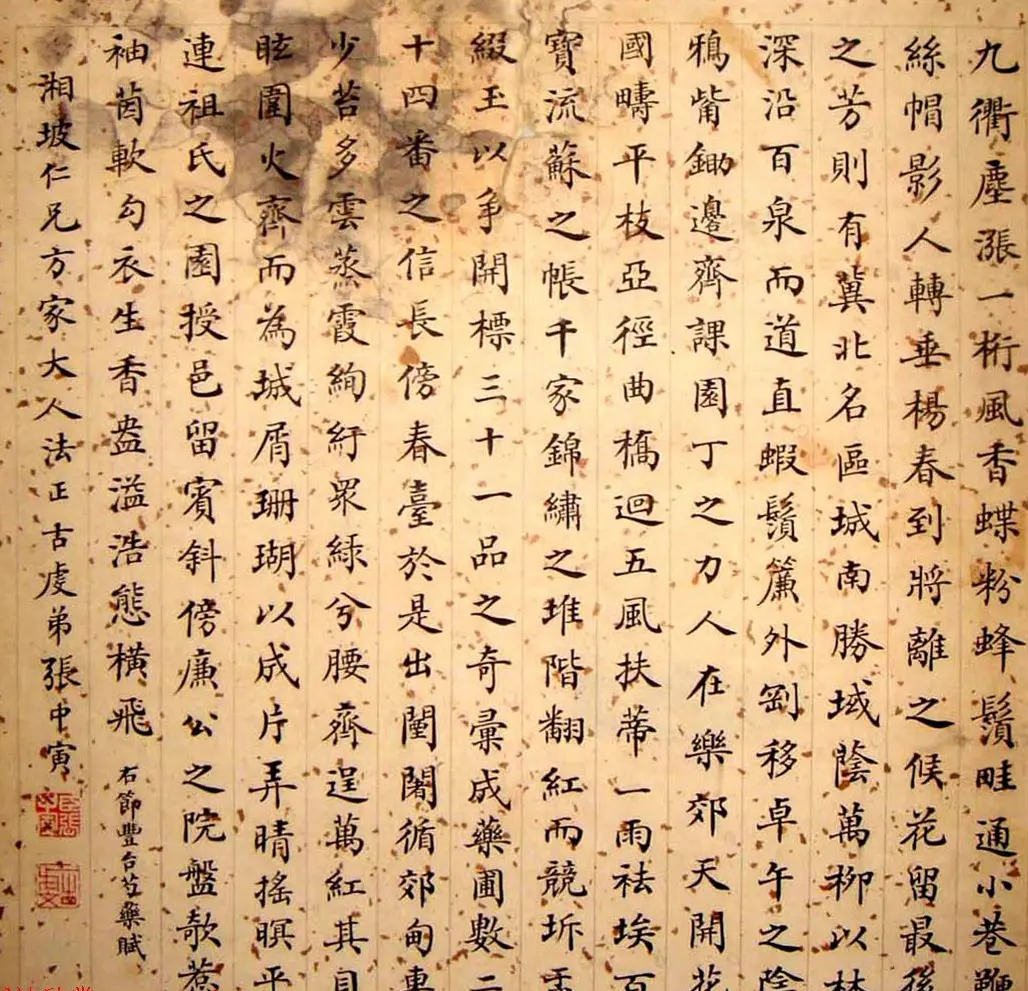 九衢塵漲一桁風香蝶粉蜂鬚畦通小巷鞭
絲帽影人轉垂楊春到將離之候花留最後
之芳則有冀北名區城南勝域蔭萬柳以林
深沿百泉而道直蝦鬚簾外劚移卓午之陰
鴉觜鋤邊齊課園丁之力人在樂郊天開花
國疇平枝亞徑曲橋迴五風扶蒂一雨祛埃百
寶流蘇之帳千家錦繡之堆階翻紅而競坼
綴玉以爭開標三十一品之奇彙成藥圃數二
十四番之信長傍春臺於是出闉闍循郊甸車
少苔多雲蒸霞絢紆眾綠兮腰齊逞萬紅其
眩圍火齊而為城屑珊瑚以成片弄晴搖暝平
連祖氏之園授邑留賓斜傍廉公之院盤欹惹
袖茵軟勾衣生香盎溢浩態橫飛
右節豐台芍藥賦
湘坡仁兄方家大人法正古虔弟張中寅